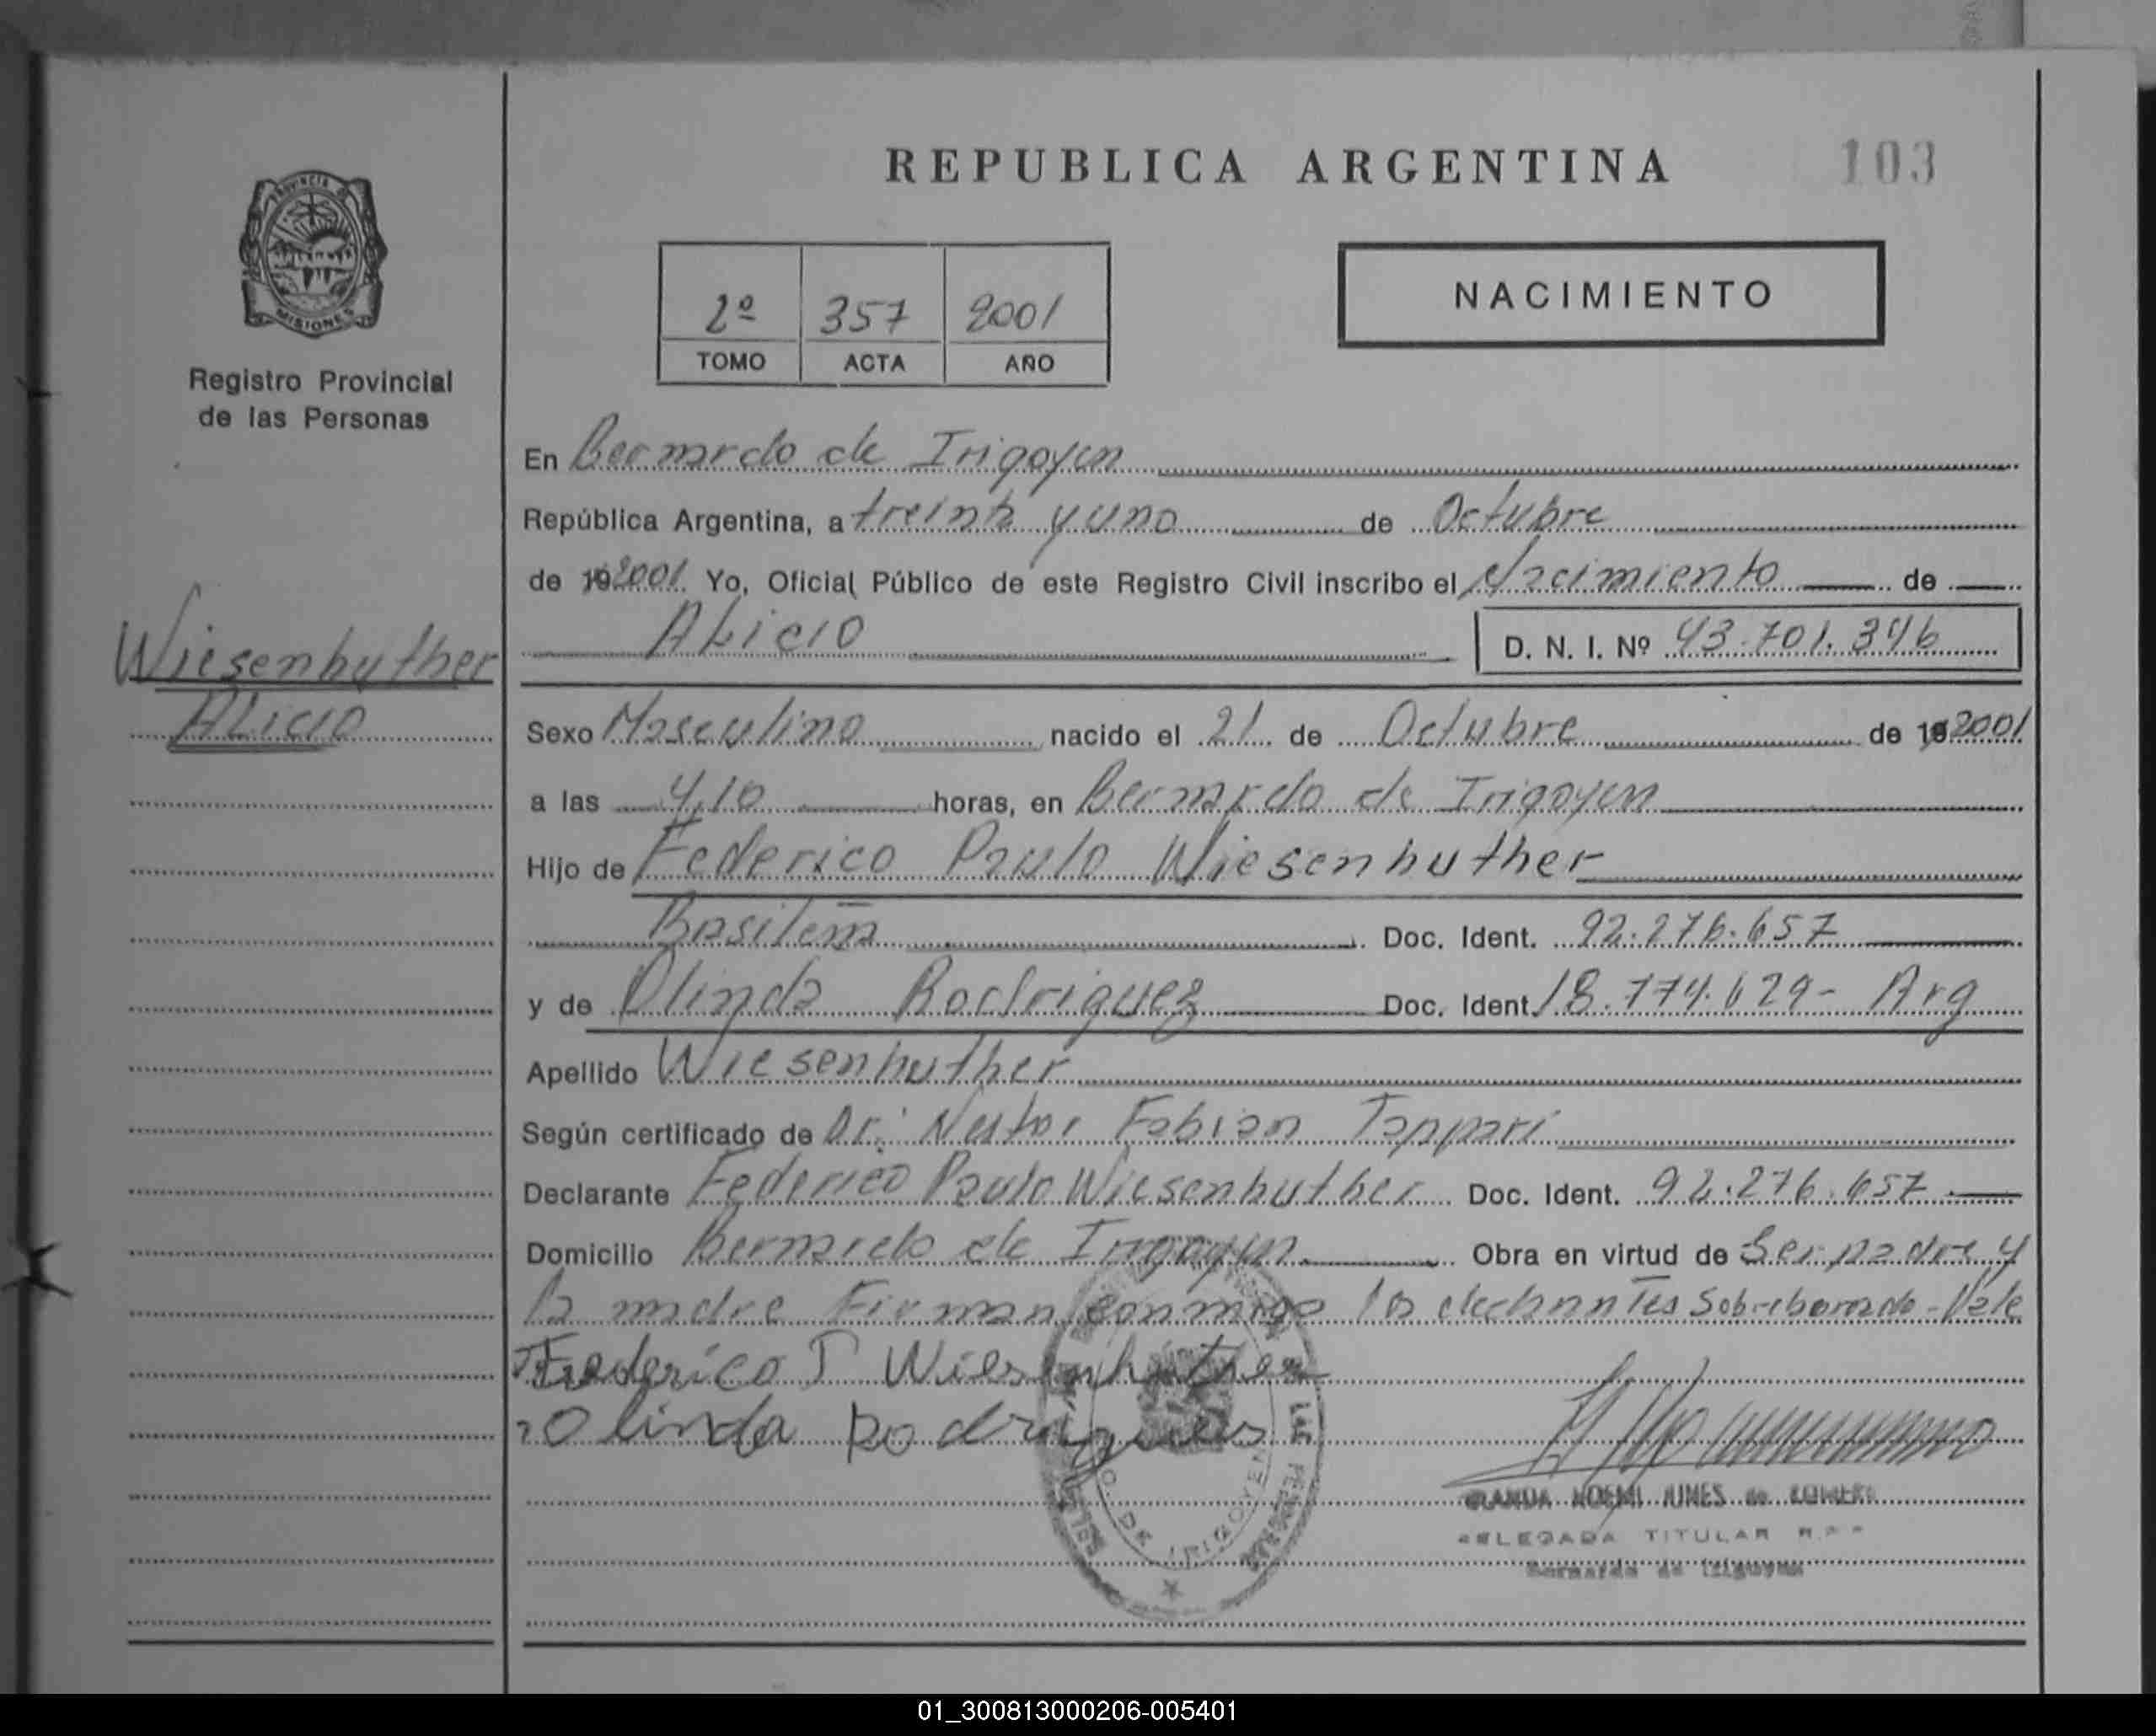 REPUBLICA ARGENTINA
103
PROVINCIA DE
MISIONES
Registro Provincial
de las Personas
2º 357 2001
TOMO ACTA AÑO
NACIMIENTO
En Bernardo de Irigoyen
República Argentina, a treinta y uno de Octubre
de 192001. Yo, Oficial Público de este Registro Civil inscribo el Nacimiento de
Alicio
D. N. I. Nº 43.701.346
Wiesenhuther
Alicio
Sexo Masculino nacido el 21 de Octubre de 192001
a las 4,10 horas, en Bernardo de Irigoyen
Hijo de Federico Paulo Wiesenhuther
Brasileña Doc. Ident. 92.276.657
y de Olinda Rodriguez Doc. Ident. 18.774.629- Arg
Apellido Wiesenhuther
Según certificado de Dr. Nestor Fabian Tappari
Declarante Federico Paulo Wiesenhuther Doc. Ident. 92.276.657
Domicilio Bernardo de Irigoyen Obra en virtud de Ser padre y
la madre Firman conmigo los declarantes Sobreborrado-Vale
Frederico P Wiesenhuther
Olinda Rodrigues
DE IRIGOYEN
NOEMI de ROMERO
DELEGADA TITULAR R.P.P
Bernardo de Irigoyen
01_300813000206-005401